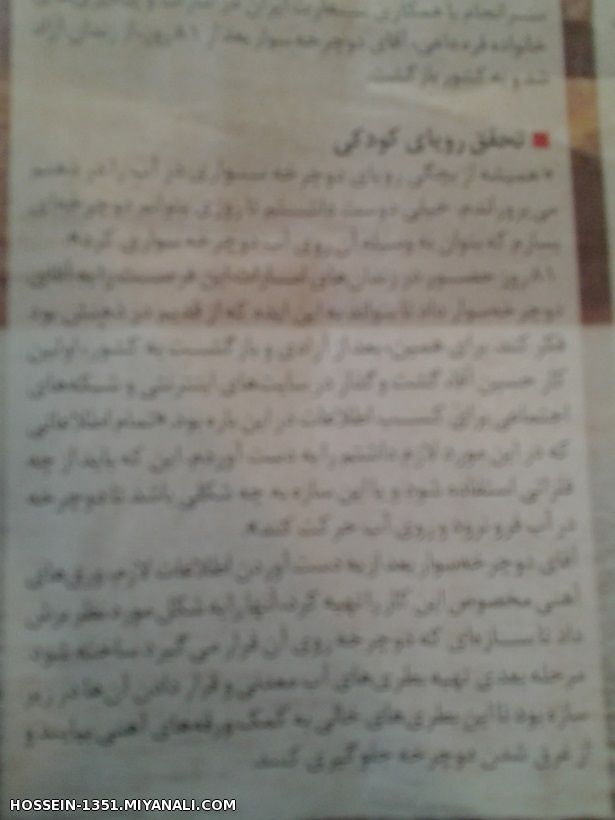 سرانجام با همکاری سفارت ایران در امارات و
خانواده فره‌ماهی، آقای دوچرخه‌سوار بعد از ۸۱ روز، از زندان آزاد
شد و به کشور بازگشت.
تحقق رویای کودکی
«همیشه از بچگی رویای دوچرخه سواری در آب را در ذهنم
می‌پروراندم. خیلی دوست داشتم تا روزی بتوانم دوچرخه‌ای
بسازم که بتوان به وسیله آن روی آب دوچرخه سواری کرد».
۸۱ روز حضور در زندان‌های امارات این فرصت را به آقای
دوچرخه‌سوار داد تا بتواند به این ایده که از قدیم در ذهنش بود
فکر کند. برای همین، بعد از آزادی و بازگشت به کشور، اولین
کار حسین آقا، گشت و گذار در سایت‌های اینترنتی و شبکه‌های
اجتماعی برای کسب اطلاعات در این باره بود. «تمام اطلاعاتی
که در این مورد لازم داشتم را به دست آوردم. این که باید از چه
فلزاتی استفاده شود و یا این سازه به چه شکلی باشد تا دوچرخه
در آب فرو نرود و روی آب حرکت کند».
آقای دوچرخه‌سوار بعد از به دست آوردن اطلاعات لازم، ورق‌های
آهنی مخصوص این کار را تهیه کرد، آنها را به شکل مورد نظر برش
داد تا سازه‌ای که دوچرخه روی آن قرار می‌گیرد ساخته شود.
مرحله بعدی تهیه بطری‌های آب معدنی و قرار دادن آن‌ها در زیر
سازه بود تا این بطری‌های خالی به کمک ورقه‌های آهنی بیایند و
از غرق شدن دوچرخه جلوگیری کنند.
HOSSEIN-1351.MIYANALI.COM